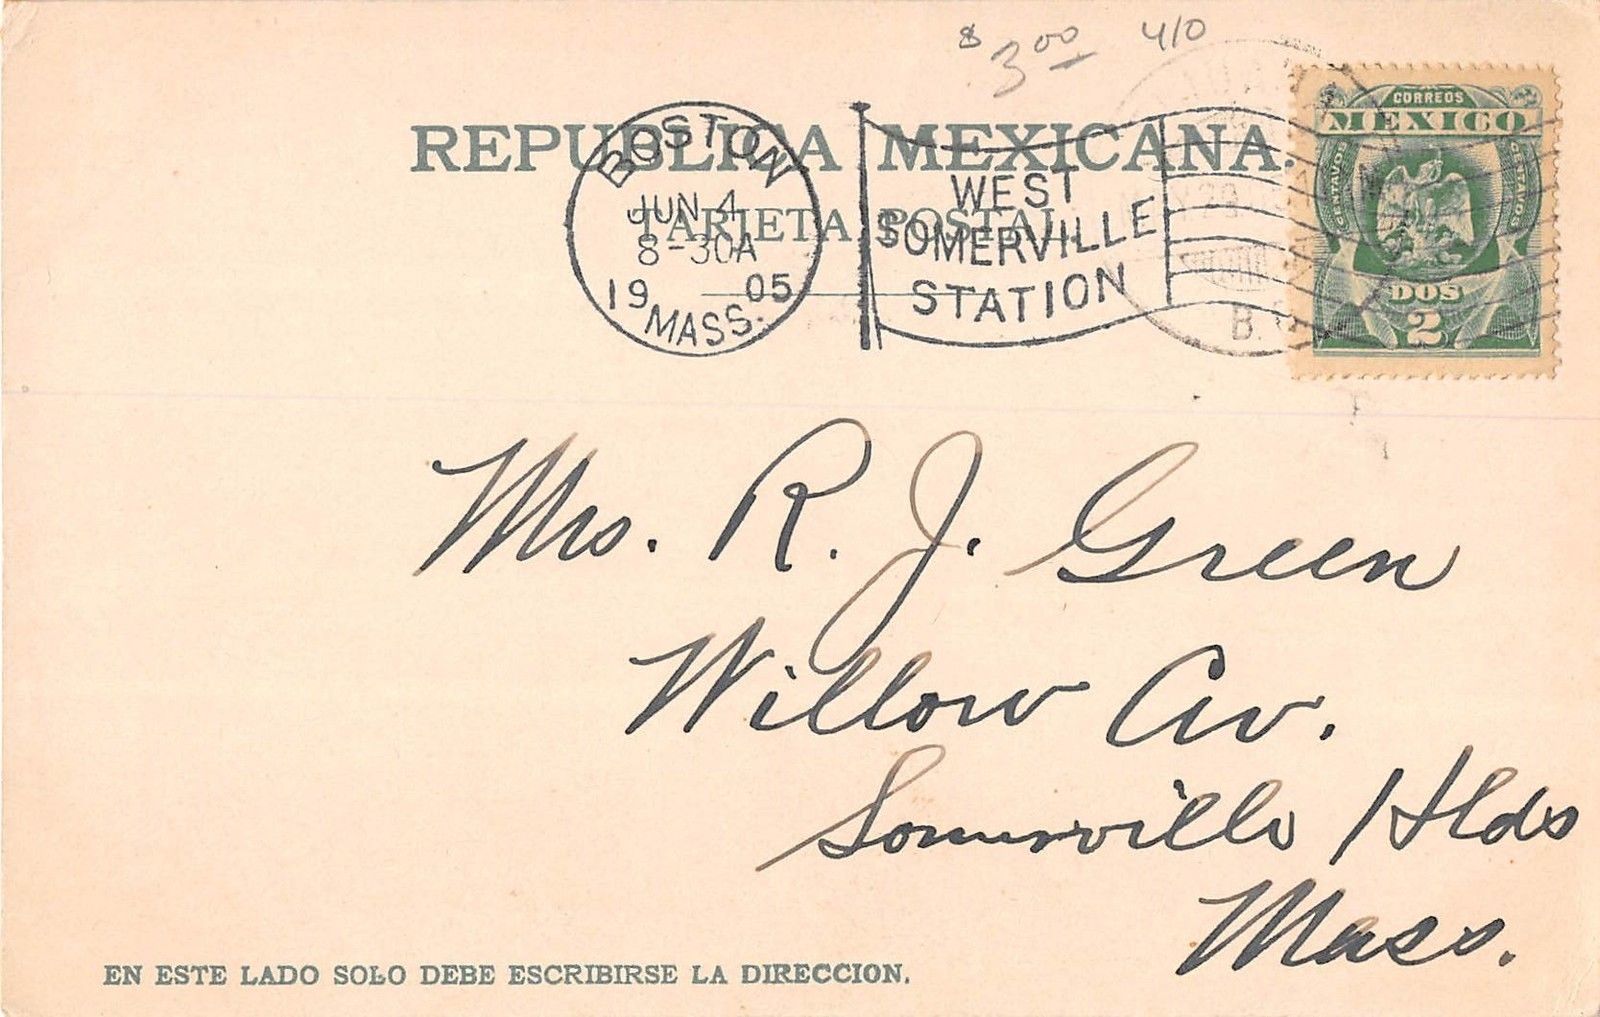 $ 3.00 410
REPUBLICA MEXICANA.
TARJETA POSTAL
BOSTON
JUN 4
8-30A
1905
MASS.
WEST
SOMERVILLE
STATION
CORREOS
MEXICO
CENTAVOS CENTAVOS
DOS
2
Mrs. R. J. Green
Willow Av.
Somerville Hlds
Mass.
EN ESTE LADO SOLO DEBE ESCRIBIRSE LA DIRECCION.